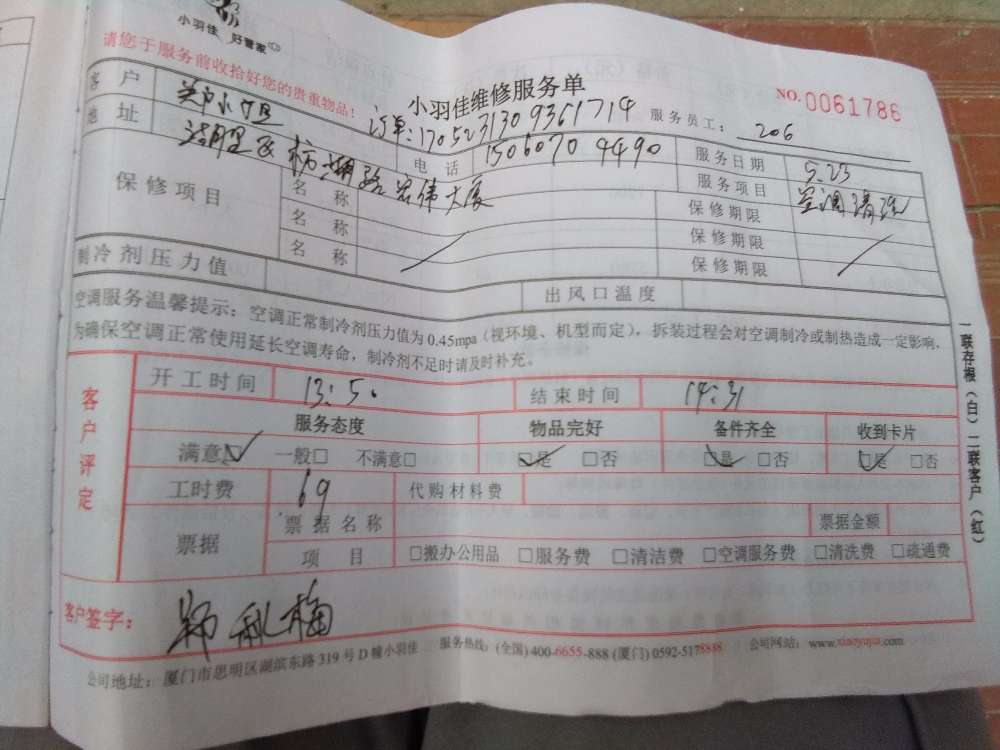 小羽佳 好管家
请您于服务前收拾好您的贵重物品!
小羽佳维修服务单
NO.0061786
订单:1705231309361714
服务员工: 206
客户 郑小姐
电话 1506070 4490
服务日期 5.23
地址 湖里区 枋湖路宏伟大厦
服务项目 空调清洗
保修项目
名称 保修期限
名称 保修期限
名称 保修期限
制冷剂压力值 出风口温度
空调服务温馨提示:空调正常制冷剂压力值为 0.45mpa(视环境、机型而定),拆装过程会对空调制冷或制热造成一定影响,
为确保空调正常使用延长空调寿命,制冷剂不足时请及时补充。
客户评定
开工时间 13:50 结束时间 14:31
服务态度 物品完好 备件齐全 收到卡片
满意☑ 一般□ 不满意□ ☑是 □否 ☑是 □否 ☑是 □否
工时费 69 代购材料费
票据 票据名称 票据金额
项目 □搬办公用品 □服务费 □清洁费 □空调服务费 □清洗费 □疏通费
客户签字: 郑秋梅
公司地址:厦门市思明区湖滨东路 319 号 D 幢小羽佳 服务热线:(全国)400-6655-888 (厦门) 0592-5178888 公司网站:www.xiaoyujia.com
一联存根(白)二联客户(红)